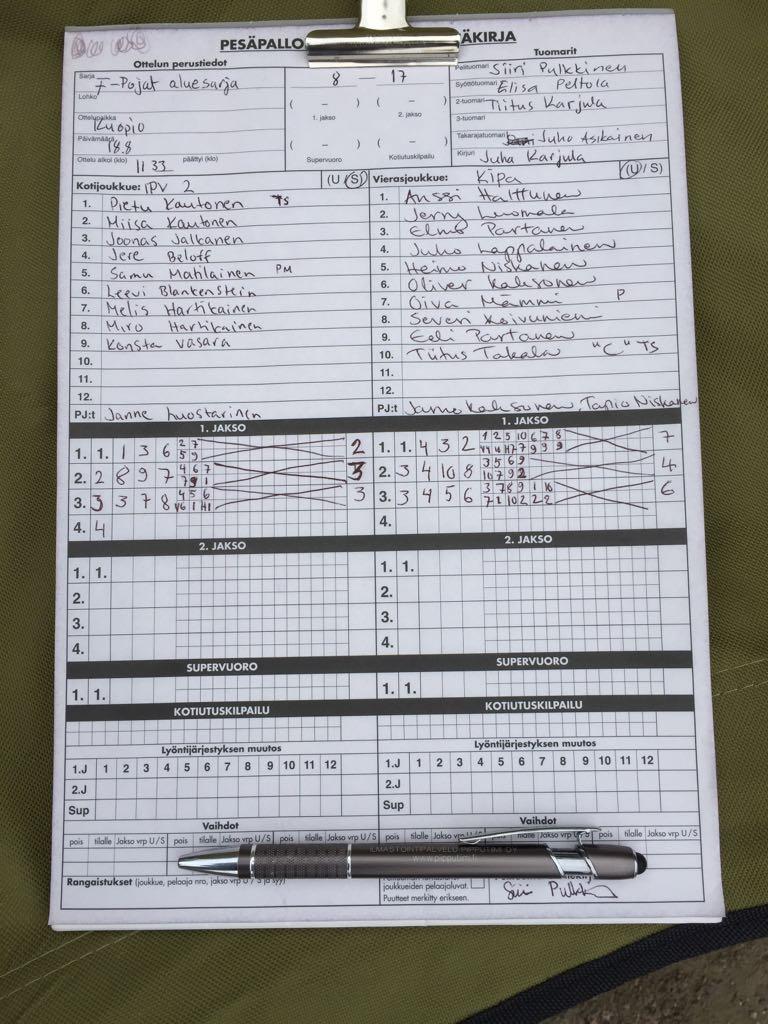 PESÄPALLO ÄKIRJA
Ottelun perustiedot
Sarja F-Pojat aluesarja
Lohko
Ottelupaikka Kuopio
Päivämäärä 18.8
Ottelu alkoi (klo) 11 33 päättyi (klo)
8 — 17
( – ) ( – )
1. jakso 2. jakso
( – ) ( – )
Supervuoro Kotiutuskilpailu
Tuomarit
Pelituomari Siiri Pulkkinen
Syöttötuomari Elisa Peltola
2-tuomari Tiitus Karjula
3-tuomari
Takarajatuomari Juho Asikainen
Kirjuri Juha Karjula
Kotijoukkue: IPV 2 (U/S)
1. Pietu Kautonen TS
2. Miisa Kautonen
3. Joonas Jalkanen
4. Jere Beloff
5. Samu Matilainen PM
6. Leevi Blankenstein
7. Melis Hartikainen
8. Miro Hartikainen
9. Konsta Vasara
10.
11.
12.
PJ:t Janne Luostarinen
Vierasjoukkue: Kipa (U/S)
1. Anssi Halttunen
2. Jerry Luomala
3. Elmo Partanen
4. Juho Lappalainen
5. Heimo Niskanen
6. Oliver Kaksonen
7. Oiva Mämmi P
8. Severi Koivuniemi
9. Eeli Partanen
10. Tiitus Takala "C" TS
11.
12.
PJ:t Jarno Kaksonen, Tapio Niskanen
1. JAKSO
1. 1. 1 3 6 2 7 2
5 9
2. 2 8 9 7 4 6 7 3
3. 3 3 7 8 4 5 6 3
4. 4
1. JAKSO
1. 1. 4 3 2 1 2 5 10 6 7 8 7
2. 3 4 10 8 3 5 6 9 4
10 7 9 2
3. 3 4 5 6 3 7 8 9 1 10 6
7 1 10 2 2 2
4.
2. JAKSO
1. 1.
2.
3.
4.
2. JAKSO
1. 1.
2.
3.
4.
SUPERVUORO
1. 1.
SUPERVUORO
1. 1.
KOTIUTUSKILPAILU
KOTIUTUSKILPAILU
Lyöntijärjestyksen muutos
1.J 1 2 3 4 5 6 7 8 9 10 11 12
2.J
Sup
Lyöntijärjestyksen muutos
1.J 1 2 3 4 5 6 7 8 9 10 11 12
2.J
Sup
Vaihdot
pois tilalle Jakso vrp U/S pois tilalle Jakso vrp U/S
Vaihdot
pois tilalle Jakso vrp U/S pois tilalle Jakso vrp U/S
ILMASTOINTIPALVELU PIPPUTIMI OY
www.pipputimi.fi
Rangaistukset (joukkue, pelaaja nro, jakso vrp U / S ja syy)
joukkueiden pelaajaluvat.
Puutteet merkitty erikseen.
Siiri Pulkkinen